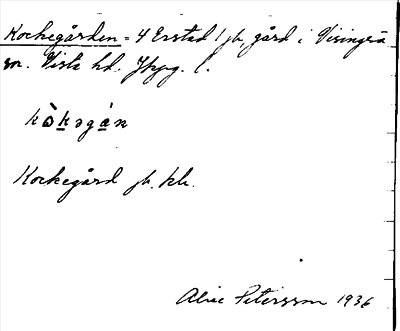 Kockegården = 4 Erstad 1 jb, gård i Visingsö
sn. Vista hd. Jkpg. l.
kɔ̀kəgán
Kockegård jb. kk.
Alice Petersson 1936